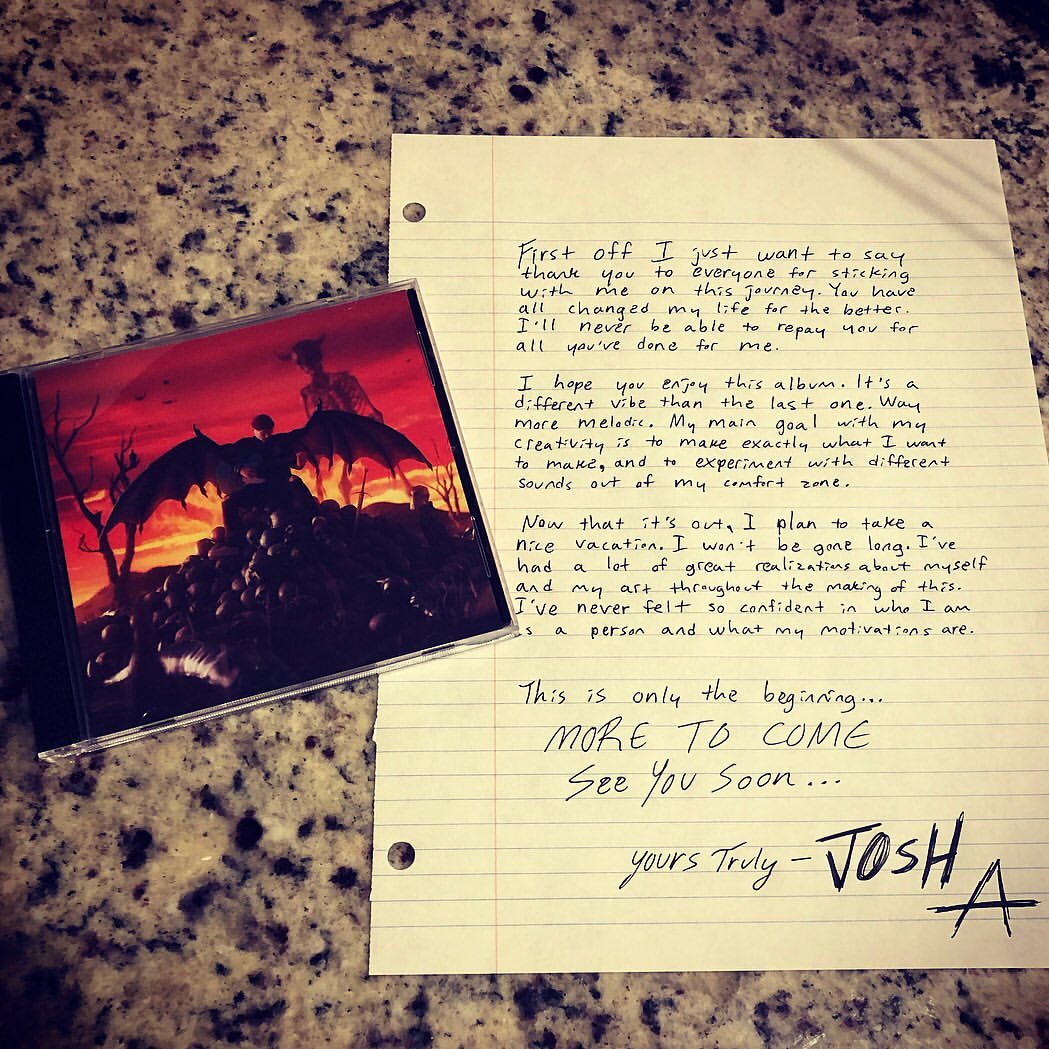 First off I just want to say
thank you to everyone for sticking
with me on this journey. You have
all changed my life for the better.
I'll never be able to repay you for
all you've done for me.
I hope you enjoy this album. It's a
different vibe than the last one. Way
more melodic. My main goal with my
creativity is to make exactly what I want
to make, and to experiment with different
sounds out of my comfort zone.
Now that it's out, I plan to take a
nice vacation. I won't be gone long. I've
had a lot of great realizations about myself
and my art throughout the making of this.
I've never felt so confident in who I am
s a person and what my motivations are.
This is only the beginning...
MORE TO COME
See You Soon...
yours Truly - JOSH
A